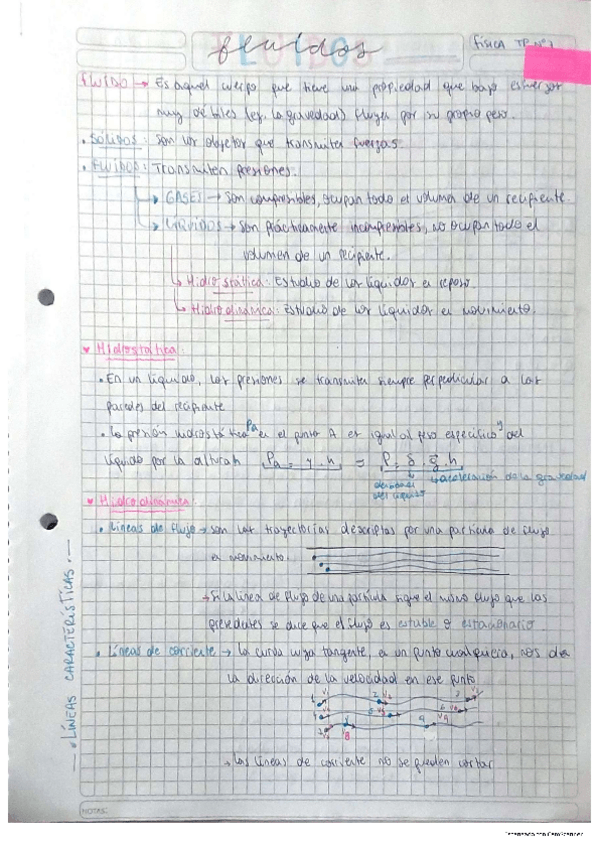 fluidos
FÍSICA TP Nº1
FLUIDO → Es aquel cuerpo que tiene una propiedad que bajo esfuerzos
muy débiles (ej. la gravedad) fluyen por su propio peso.
• SÓLIDOS: Son los objetos que transmiten fuerzas.
• FLUIDOS: Transmiten presiones.
→ GASES → Son compresibles, ocupan todo el volumen de un recipiente.
→ LÍQUIDOS → Son prácticamente incompresibles, no ocupan todo el
volumen de un recipiente.
→ Hidrostática: Estudio de los líquidos en reposo.
→ Hidrodinámica: Estudio de los líquidos en movimiento.
♥ Hidrostática:
• En un líquido, las presiones se transmiten siempre perpendicular a las
paredes del recipiente
• La presión hidrostática Pa en el punto A es igual al peso específico γ del
líquido por la altura h Pa = γ . h = P = δ . g . h
→ aceleración de la gravedad
del líquido
♥ Hidrodinámica:
• Líneas de flujo → son las trayectorias descriptas por una partícula de flujo
en movimiento.
→ Si la línea de flujo de una partícula sigue el mismo flujo que las
precedentes se dice que el flujo es estable o estacionario
• Líneas de corriente → la curva cuya tangente, en un punto cualquiera, nos da
la dirección de la velocidad en ese punto
→ Las líneas de corriente no se pueden cortar
— • LÍNEAS CARACTERÍSTICAS. —
NOTAS: